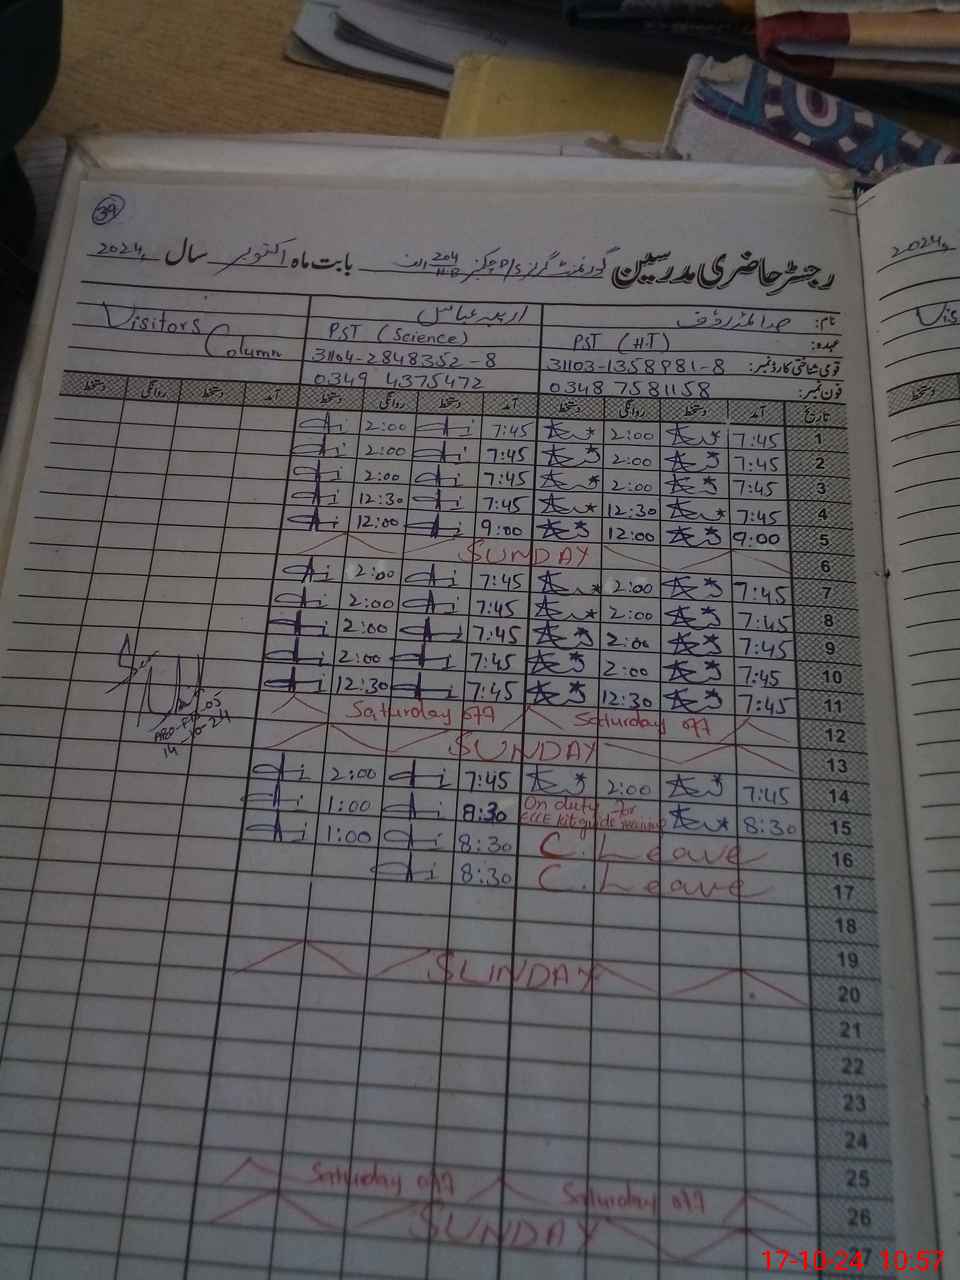 39
رجسٹر حاضری مدرسین گورنمنٹ گرلز P/S چک نمبر 204 بابت ماہ اکتوبر سال 2024
نام:
عہدہ: PST (H.T) PST (Science) Visitors Column
قومی شناختی کارڈ نمبر: 31103-1358981-8 31104-2848352-8
فون نمبر: 0348 7581158 0349 4375472
تاریخ آمد دستخط روانگی دستخط آمد دستخط روانگی دستخط آمد دستخط روانگی دستخط
1 7:45 2:00 7:45 2:00
2 7:45 2:00 7:45 2:00
3 7:45 2:00 7:45 2:00
4 7:45 12:30 7:45 12:30
5 9:00 12:00 9:00 12:00
6 SUNDAY
7 7:45 2:00 7:45 2:00
8 7:45 2:00 7:45 2:00
9 7:45 2:00 7:45 2:00
10 7:45 2:00 7:45 2:00
11 7:45 12:30 7:45 12:30
12 Saturday off Saturday off
13 SUNDAY
14 7:45 2:00 7:45 2:00
15 8:30 On duty for ECCE kit guide training 8:30 1:00
16 C. Leave 8:30 1:00
17 C. Leave 8:30
18
19
20 SUNDAY
21
22
23
24
25
26 Saturday off Saturday off
27 SUNDAY
14-10-24
2024
17-10-24 10:57